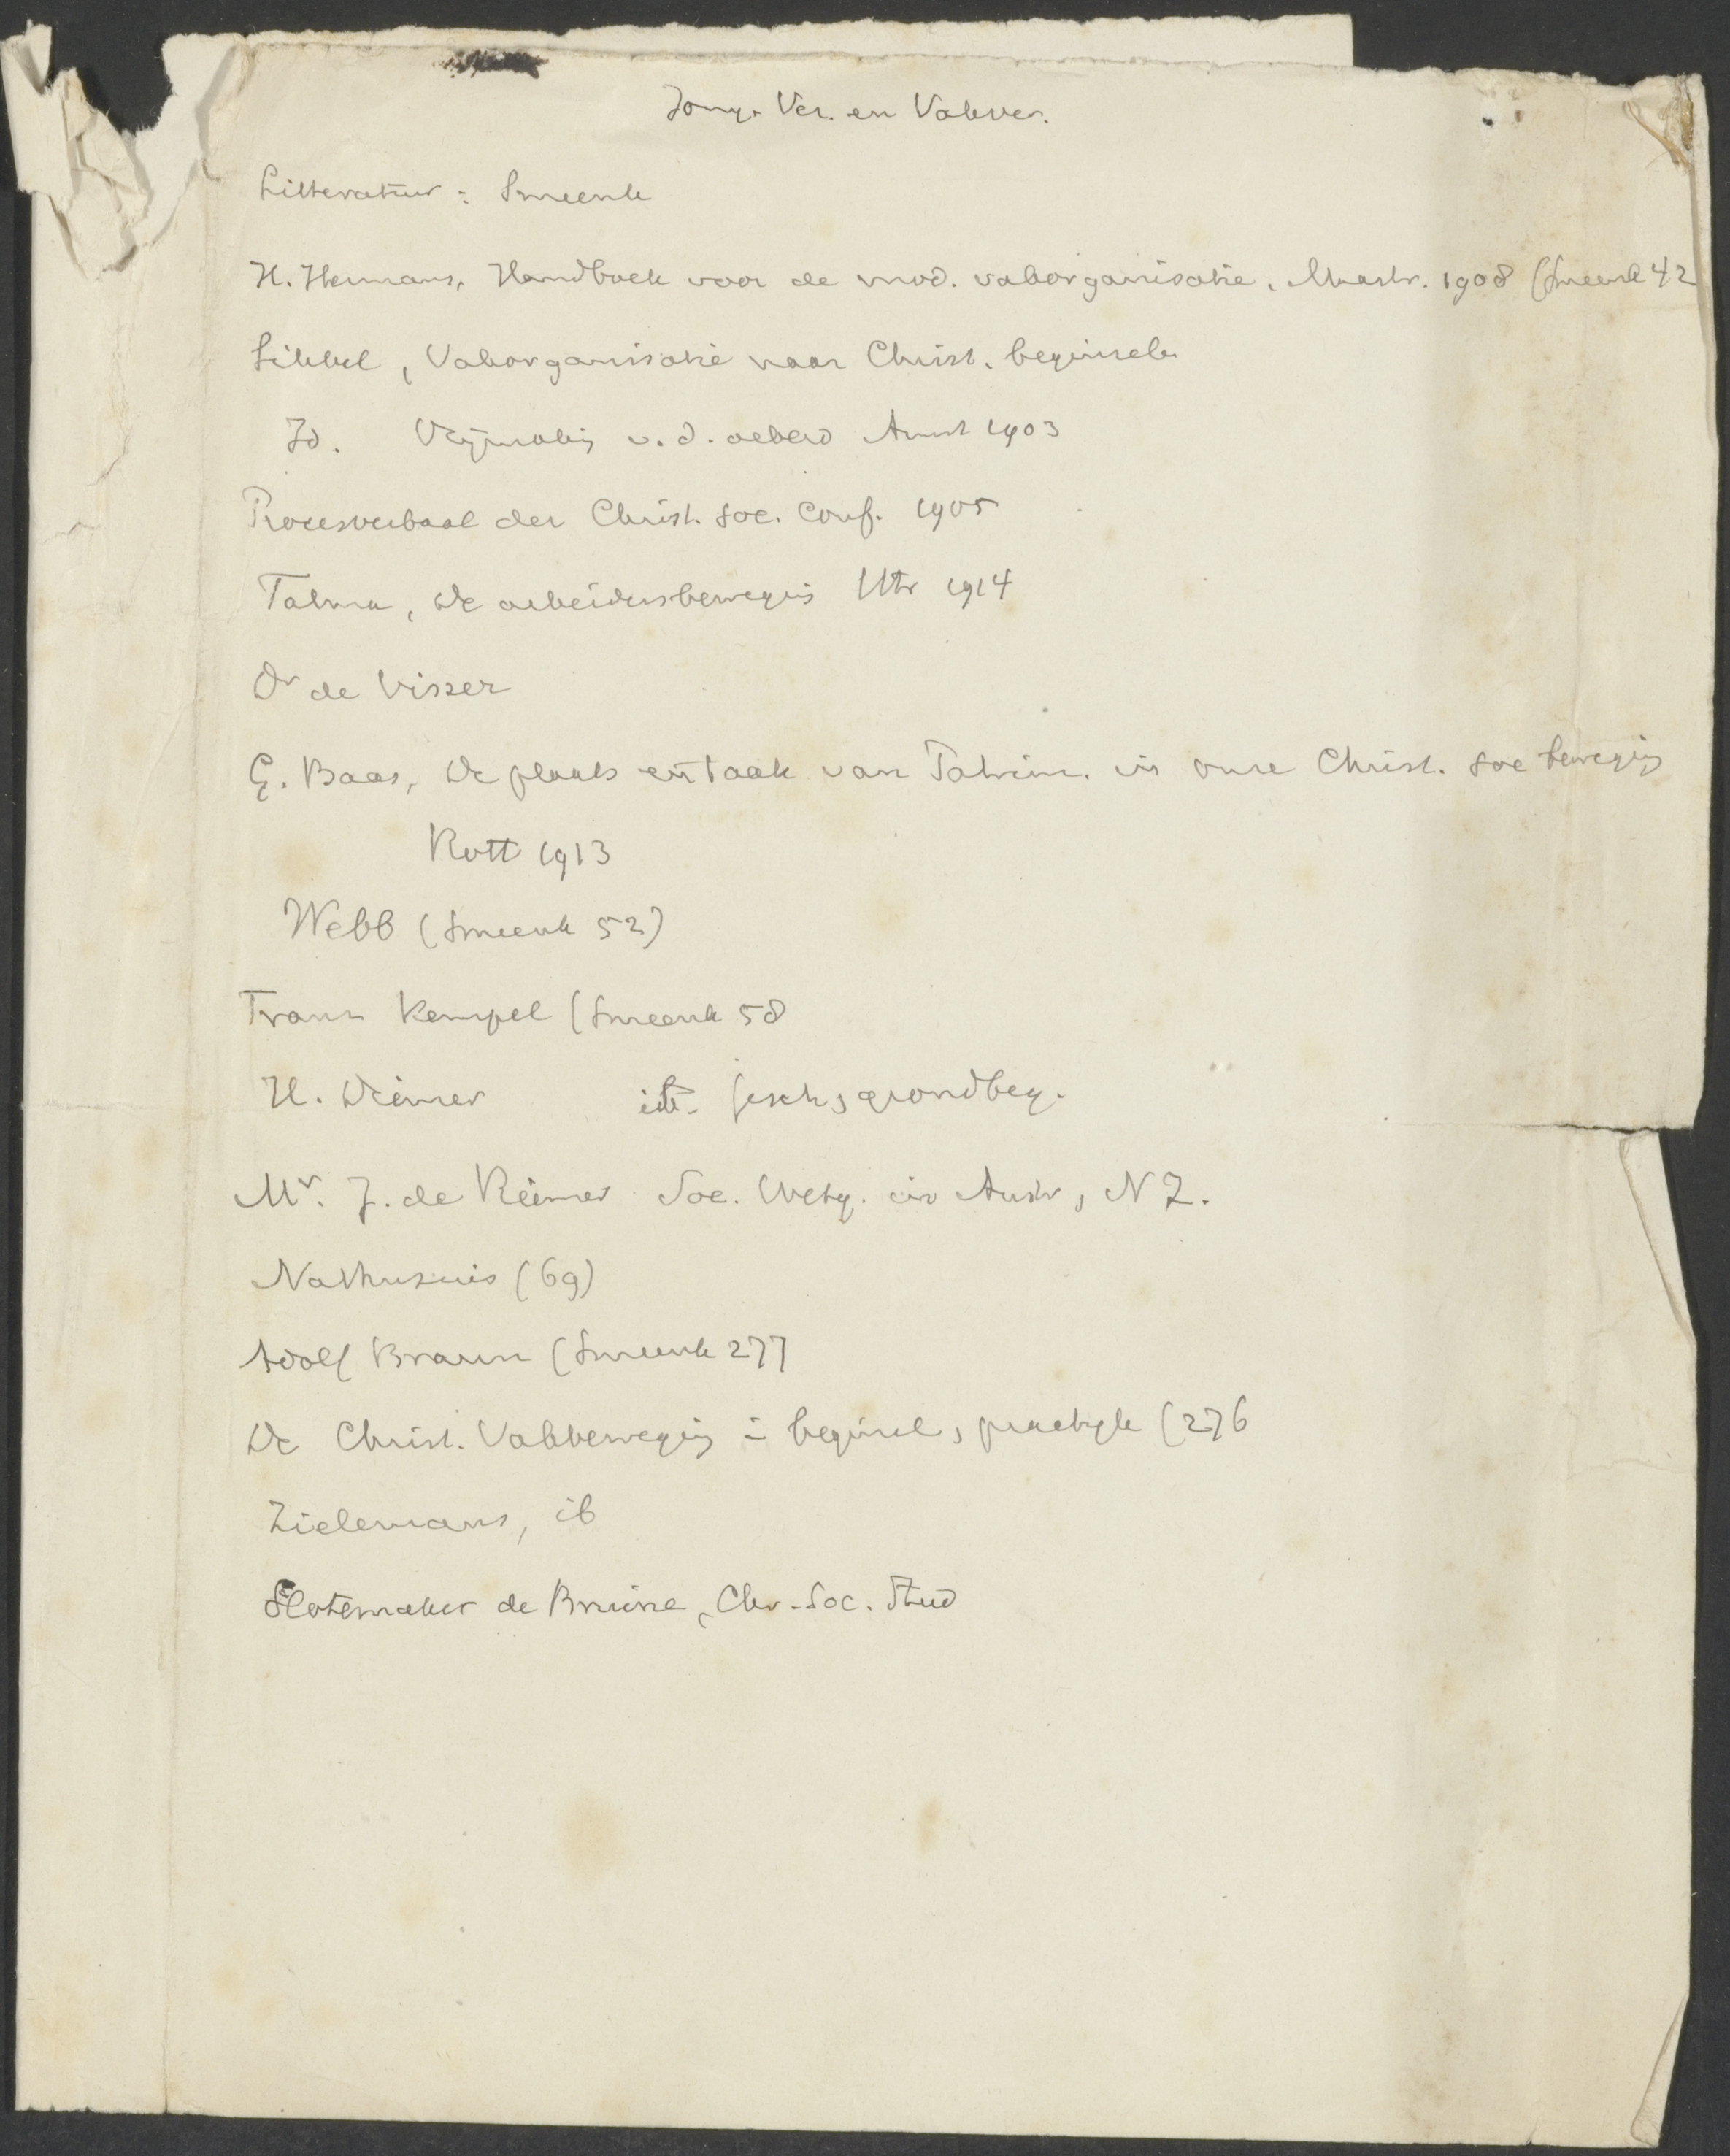 Jong. Ver. en Vakver.
Litteratuur: Smeenk
H. Hermans, Handboek voor de mod. vakorganisatie, Maastr. 1908 (Smeenk 42
Sikkel, Vakorganisatie naar Christ. beginselen
Id. Vrijmaking v. d. arbeid Amst 1903
Procesverbaal der Christ. Soc. Conf. 1905
Talma, De arbeidersbeweging Utr 1914
Dr de Visser
G. Baas, De plaats en taak van Patrim. in onze Christ. soc beweging
Rott 1913
Webb (Smeenk 52)
Franz Kempel (Smeenk 58
H. Diemer gesch, grondbeg.
Mr. J. de Reimer Soc. Wetg. in Austr, N Z.
Nathusius (69)
Adolf Braun (Smeenk 277
De Christ. Vakbeweging = beginsel, practijk (276
Zielemans, ib
Slotemaker de Bruine, Chr. Soc. Stud